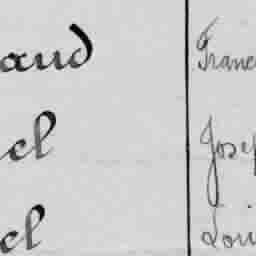 aud Franc
el Josep
el Loui